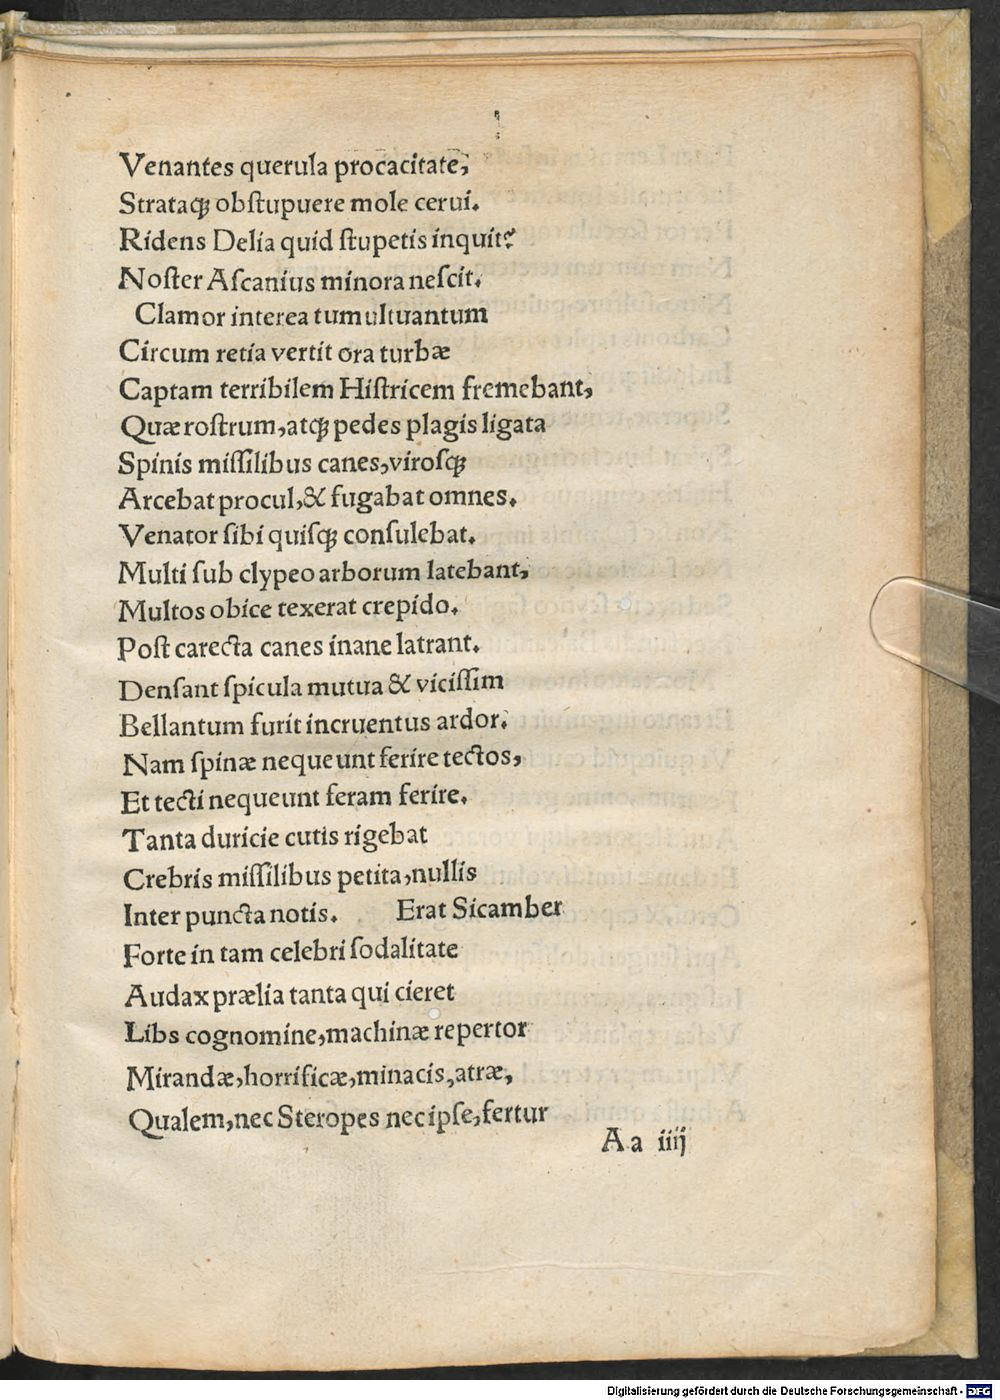 Venantes querula procacitate,
Strataqꝫ obſtupuere mole cerui.
Ridens Delia quid ſtupetis inquit?
Noſter Aſcanius minora neſcit.
Clamor interea tumultuantum
Circum retia vertit ora turbæ
Captam terribilem Hiſtricem fremebant,
Quæ roſtrum, atqꝫ pedes plagis ligata
Spinis miſſilibus canes, viroſqꝫ
Arcebat procul, & fugabat omnes.
Venator ſibi quiſqꝫ conſulebat.
Multi ſub clypeo arborum latebant,
Multos obice texerat crepido.
Poſt carecta canes inane latrant.
Denſant ſpicula mutua & viciſſim
Bellantum furit incruentus ardor.
Nam ſpinæ nequeunt ferire tectos,
Et tecti nequeunt feram ferire.
Tanta duricie cutis rigebat
Crebris miſſilibus petita, nullis
Inter puncta notis. Erat Sicamber
Forte in tam celebri ſodalitate
Audax prælia tanta qui cieret
Libs cognomine, machinæ repertor
Mirandæ, horrificæ, minacis, atræ,
Qualem, nec Steropes nec ipſe, fertur
Aa iiij
Digitalisierung gefördert durch die Deutsche Forschungsgemeinschaft - DFG